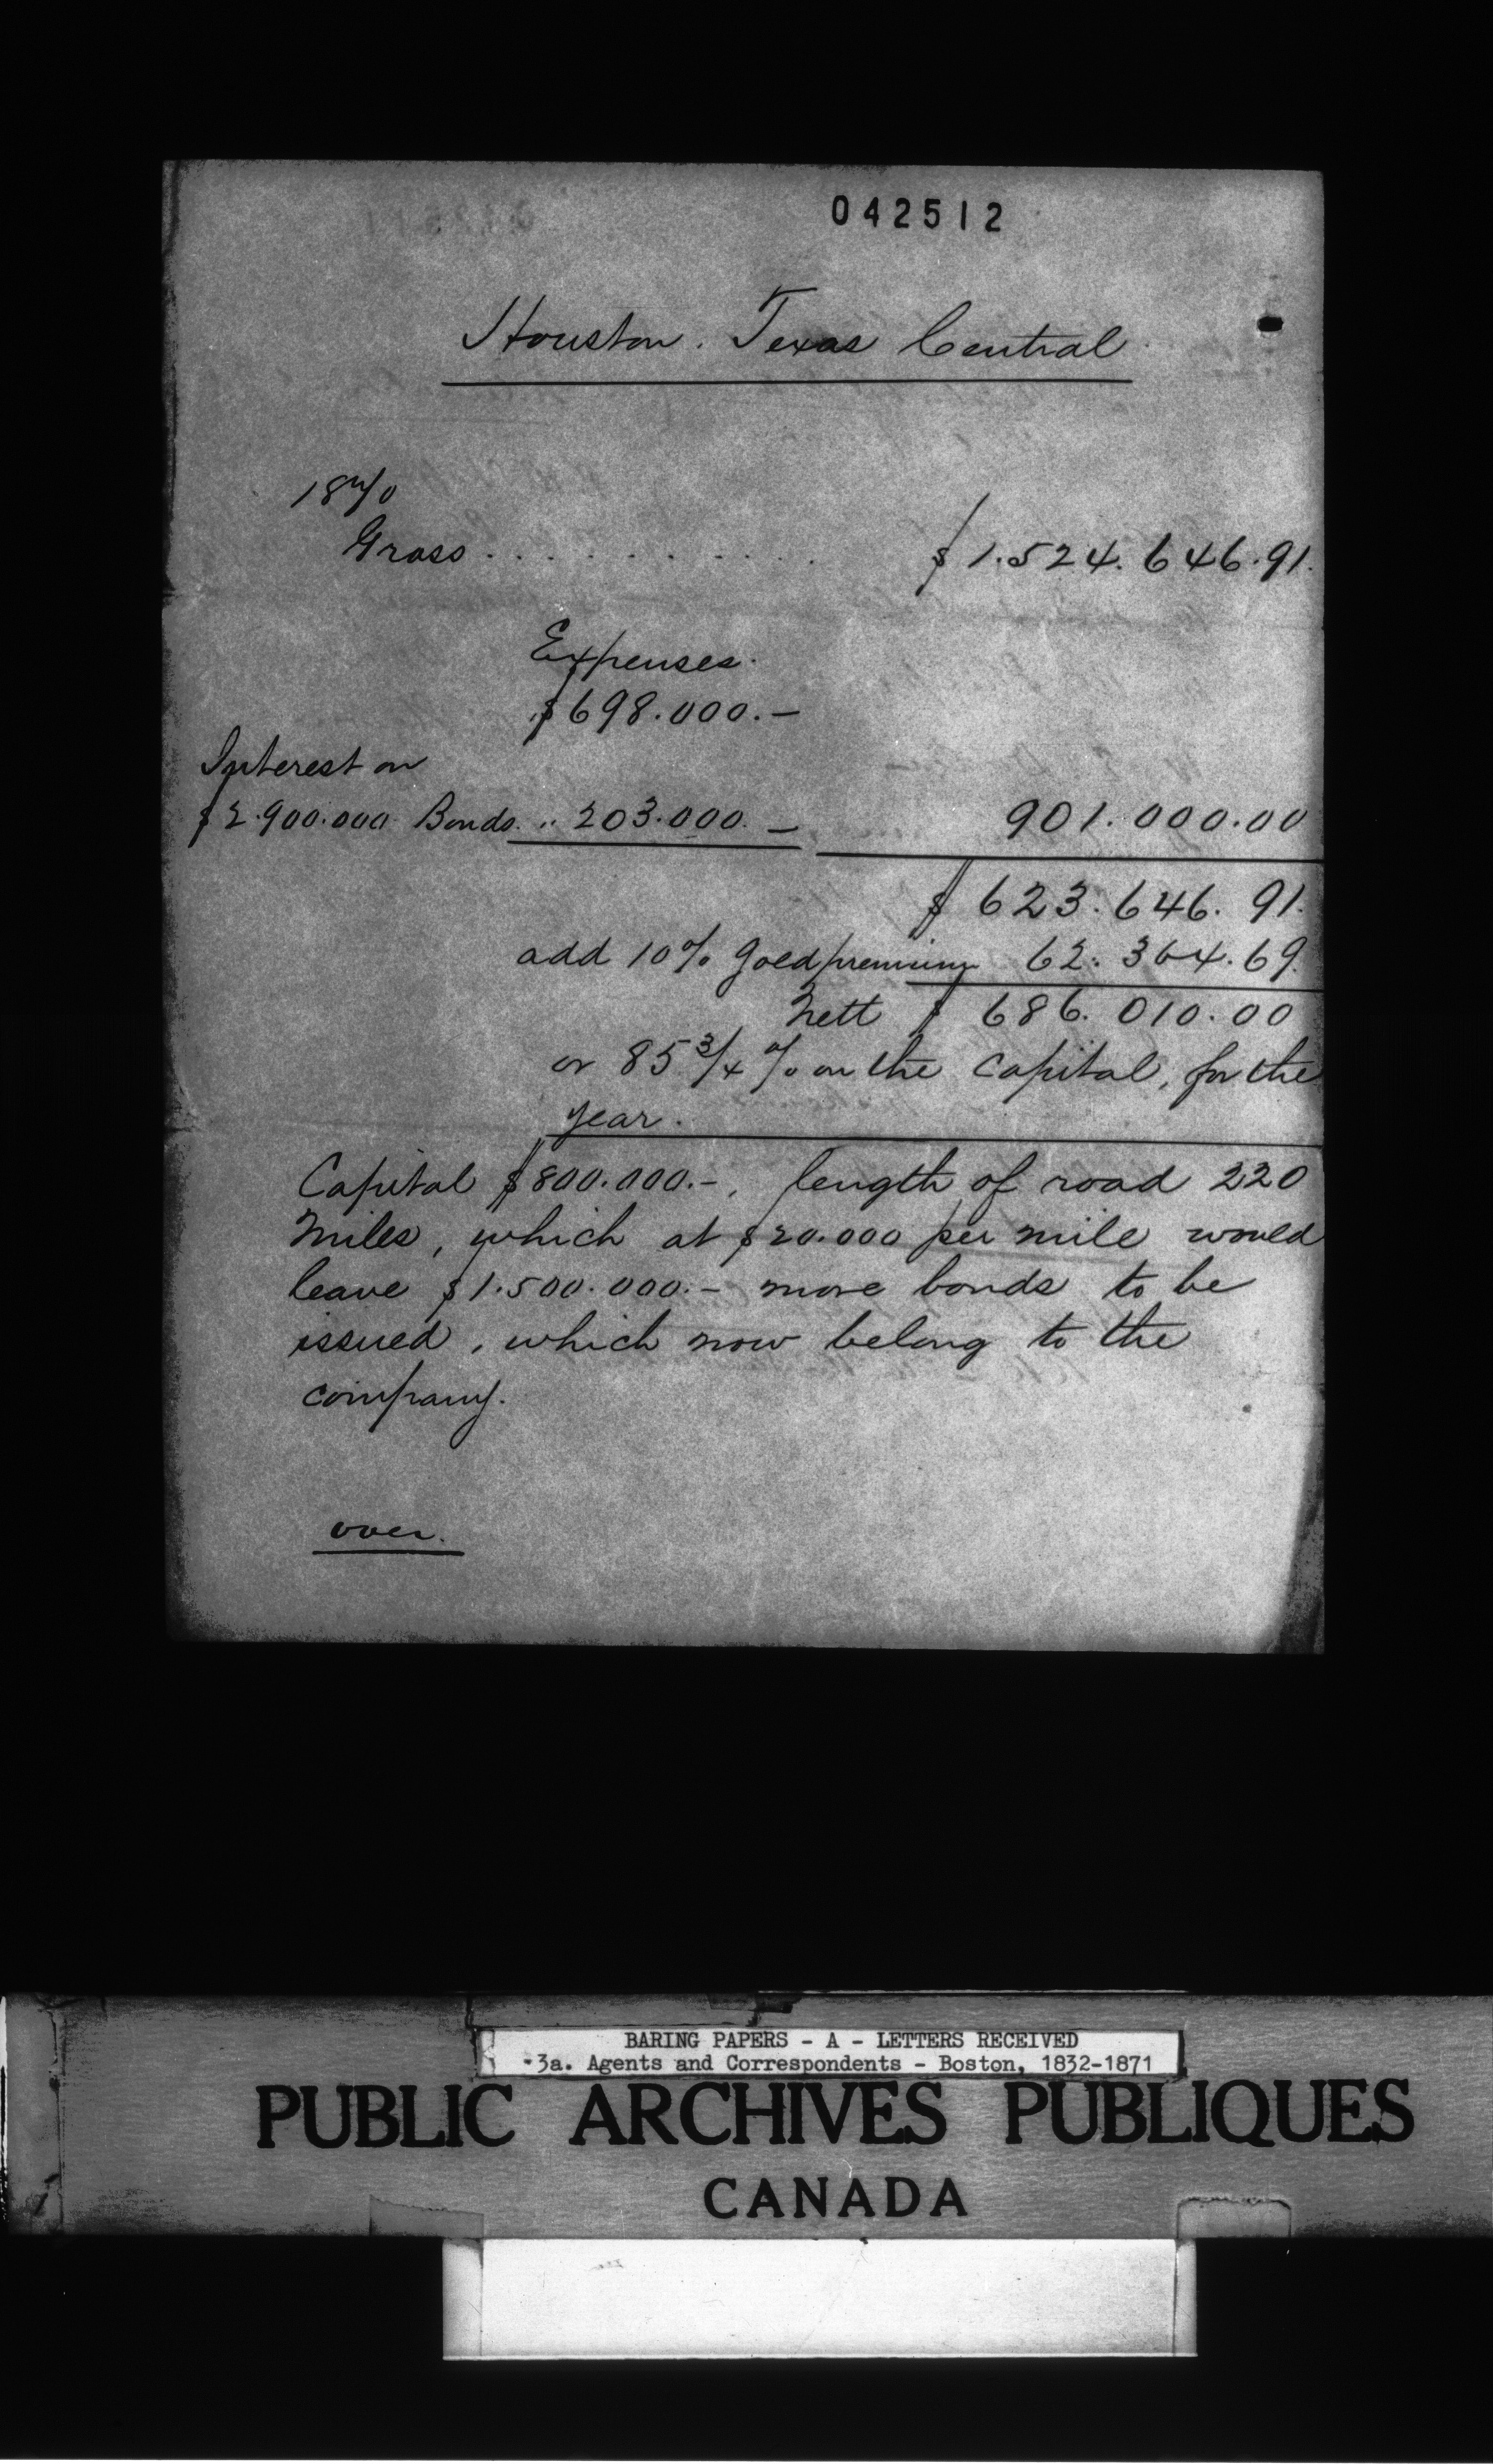 042512
Houston. Texas Central
1870
Gross . . . . . . . . . . $1.524.646.91.
Expenses.
$698.000.—
Interest on
$2.900.000 Bonds. .. 203.000. — 901.000.00
$ 623.646.91.
add 10% Goldpremium 62.364.69.
Nett $ 686.010.00
or 85 3/4 % on the Capital, for the
year.
Capital $800.000.-, length of road 220
Miles, which at $20.000 per mile would
leave $1.500.000.- more bonds to be
issued, which now belong to the
company.
over.
BARING PAPERS - A - LETTERS RECEIVED
-3a. Agents and Correspondents - Boston, 1832-1871
PUBLIC ARCHIVES PUBLIQUES
CANADA